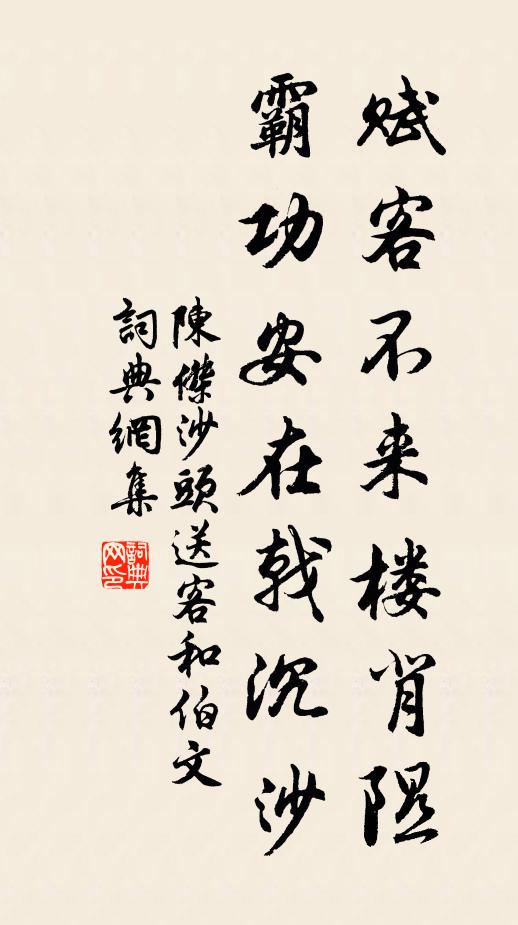 赋客不来楼背隰
霸功安在戟沉沙
陳傑沙頭送客和伯文
詞典網集
詞典网印